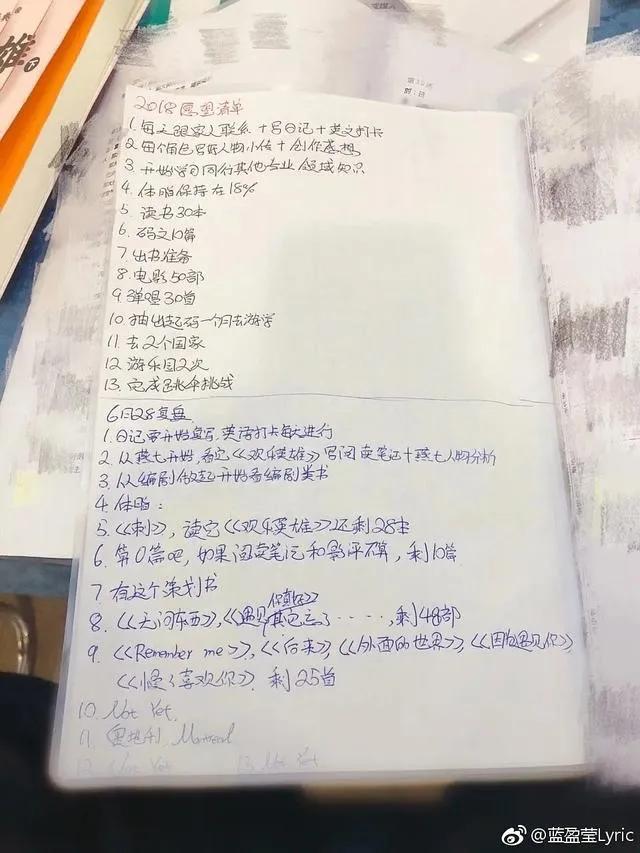 雄
下
2018愿望清单
1. 每天跟家人联系+写日记+英文打卡
2. 每个角色写好人物小传+创作感想
3. 开始学习同行其他专业领域知识
4. 体脂保持在18%
5. 读书30本
6. 码文10篇
7. 出书准备
8. 电影50部
9. 弹唱30首
10. 抽出起码一个月去游学
11. 去2个国家
12. 游乐园2次
13. 完成跳伞挑战
6月28复盘
1. 日记要开始复写,英语打卡每天进行
2. 从燕七开始,看完《欢乐英雄》写阅读笔记+燕七人物分析
3. 从编剧做起开始看编剧类书
4. 体脂:
5. 《刺》,读完《欢乐英雄》还剩28本
6. 第0篇吧,如果阅读笔记和影评不算,剩10篇
7. 有这个策划书
8. 《无问东西》,《遇见你真好》其它忘了·····,剩48部
9. 《Remember me》,《后来》,《外面的世界》,《因为遇见你》,
《怪你喜欢你》 剩25首
10. Not Yet.
11. 奥地利 Montreal
12 Not Yet 13. Not Yet
@蓝盈莹Lyric